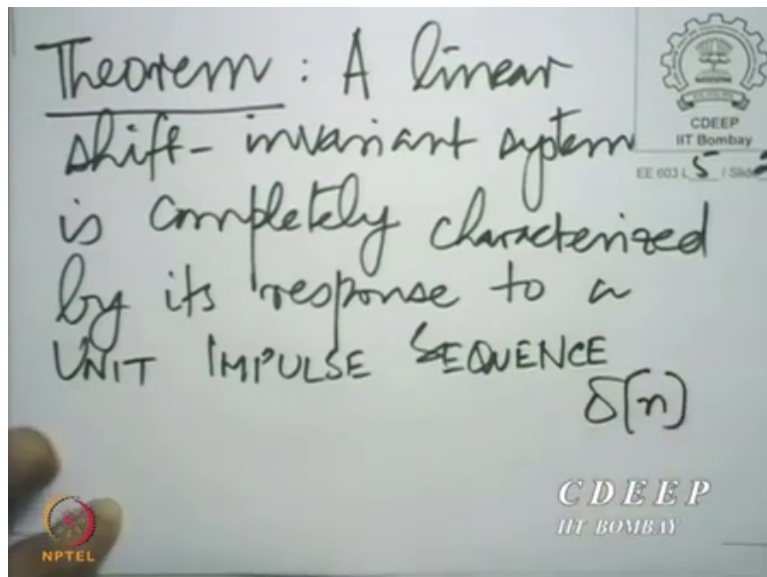 Theorem: A linear
shift-invariant system
is completely characterized
by its response to a
UNIT IMPULSE SEQUENCE
δ[n]
CDEEP
IIT Bombay
EE 603 L 5 / Slide 2
CDEEP
IIT BOMBAY
NPTEL